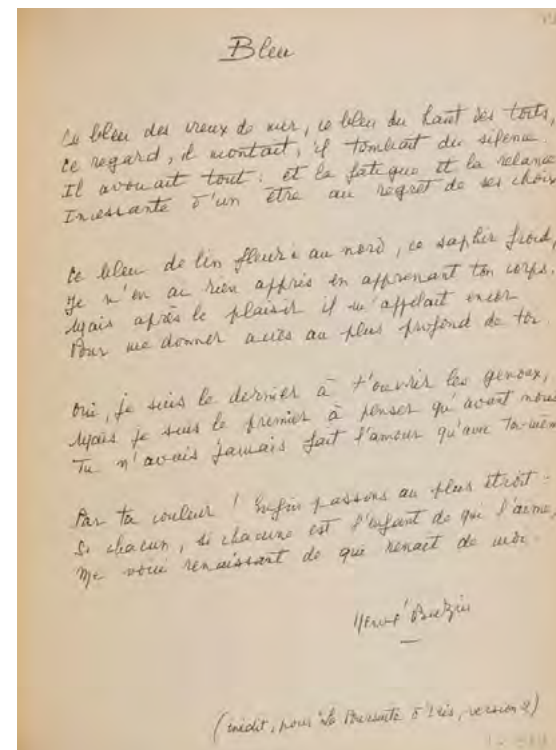 Bleu
Ce bleu des vieux de mer, ce bleu du haut des toits,
Ce regard, il montait, il tombait du silence.
Il avouait tout : et la fatigue et la relance
Incessante d'un être au regret de ses choix
Ce bleu de lin fleuri au nord, ce saphir froid,
Je n'en ai rien appris en apprenant ton corps.
Mais après le plaisir il m'appelait encor
Pour me donner accès au plus profond de toi.
Oui, je suis le dernier à t'ouvrir les genoux,
Mais je suis le premier à penser qu'avant nous
Tu n'avais jamais fait l'amour qu'avec toi-même
Par ta couleur ! Enfin passons au plus étroit :
Si chacun, si chacune est l'enfant de qui l'aime,
Me voici renaissant de qui renaît de moi.
Hervé Bazin
(inédit, pour la Poursuite d'Iris, version 2)